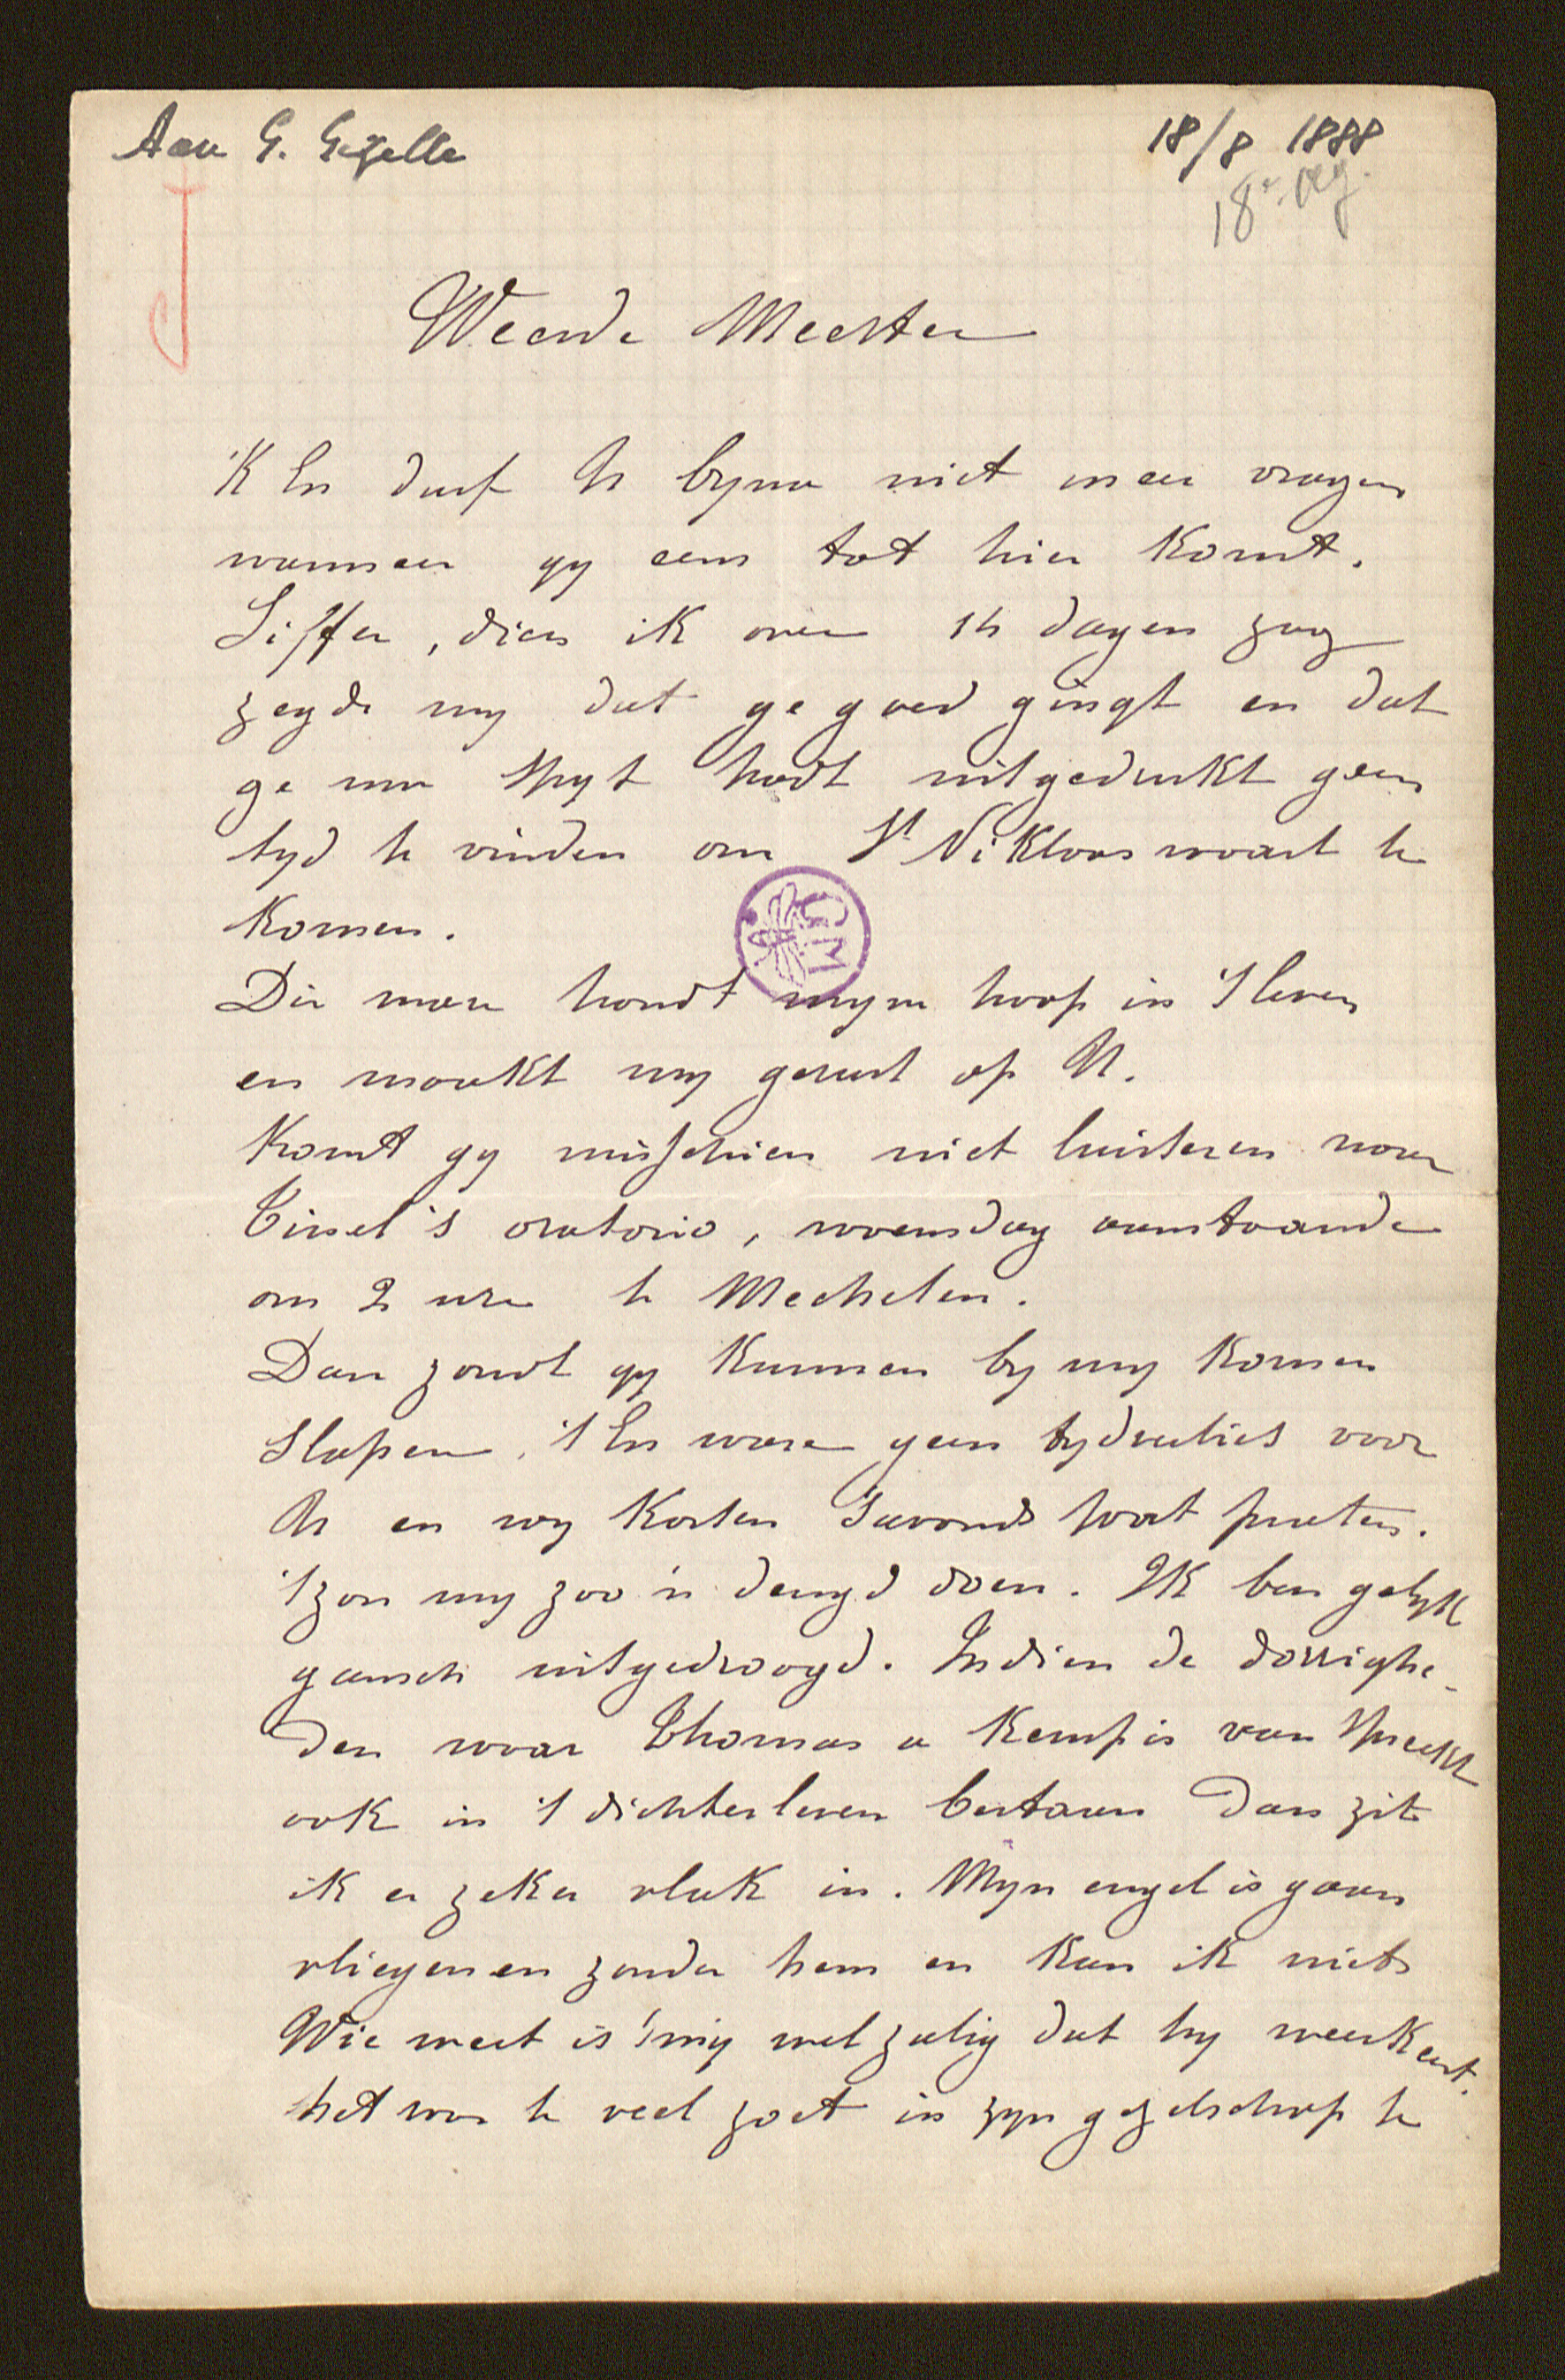 Aan G. Gezelle
18/8 1888
18e. Aug.
Weerde Meester
'K En durf U byna niet meer vragen
wanneer gy eens tot hier komt.
Siffer, dien ik over 14 dagen zag
zegde my dat ge goed gingt en dat
ge uw spyt hadt uitgedrukt geen
tyd te vinden om St Niklaaswaart te
komen.
Die mare houdt myne hoop in 't leven
en maakt my gerust op U.
Komt gy misschien niet luisteren naar
Tinel's oratorio, woensdag aanstaande
om 2 ure te Mechelen.
Dan zoudt gy kunnen by my komen
slapen. 't En ware geen tydverlies voor
U en wy kosten 's avonds wat praten.
't zou my zoo 'n deugd doen. Ik ben gelyk
gansch uitgedroogd. Indien de dorrighe-
den waar Thomas a Kempis van spreekt
ook in 't dichterleven bestaan dan zit
ik er zeker vlak in. Myn engel is gaan
vliegen en zonder hem en kan ik niets
Wie weet is 't my wel zalig dat hy weerkeert.
het was te veel zoet in zyn gezelschap te
CGM